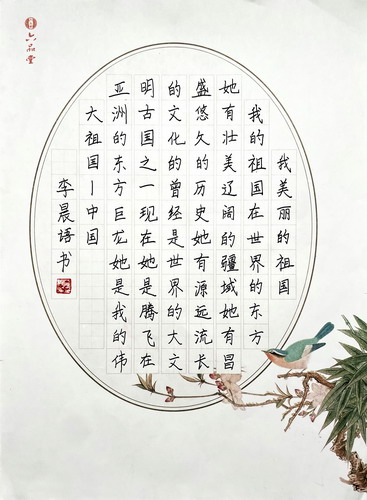 六品堂
我美丽的祖国
我的祖国在世界的东方
她有壮美辽阔的疆域她有昌
盛悠久的历史她有源远流长
的文化的曾经是世界的大文
明古国之一现在她是腾飞在
亚洲的东方巨龙她是我的伟
大祖国—中国
李晨语书